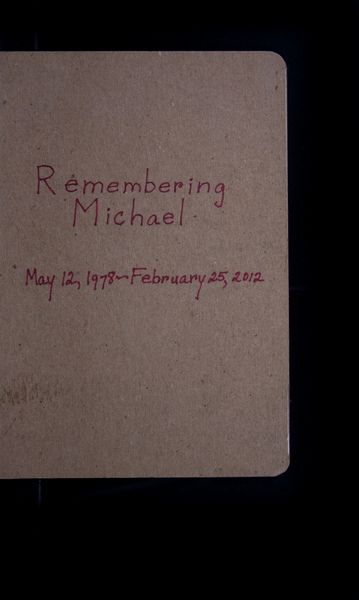 Remembering
Michael
May 12, 1978~February 25, 2012